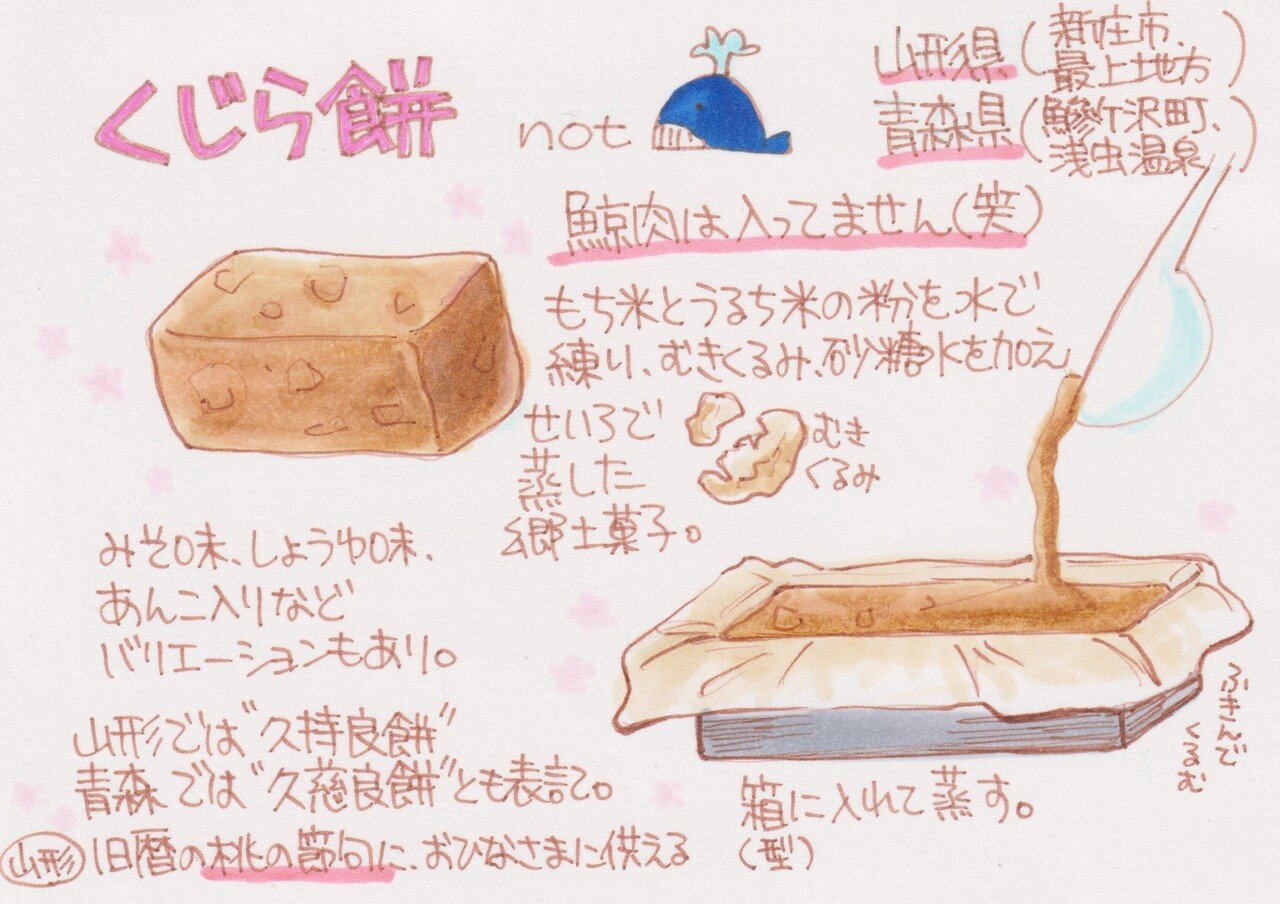 くじら餅
not
山形県(新庄市、最上地方)
青森県(鰺ヶ沢町、浅虫温泉)
鯨肉は入ってません(笑)
もち米とうるち米の粉を水で
練り、むきくるみ、砂糖水を加え
せいろで
蒸した
郷土菓子。
むき
くるみ
みそ味、しょうゆ味、
あんこ入りなど
バリエーションもあり。
山形では"久持良餅"
青森では"久慈良餅"とも表記。
山形 旧暦の桃の節句に、おひなさまに供える
ふきんで
くるむ
箱に入れて蒸す。
(型)